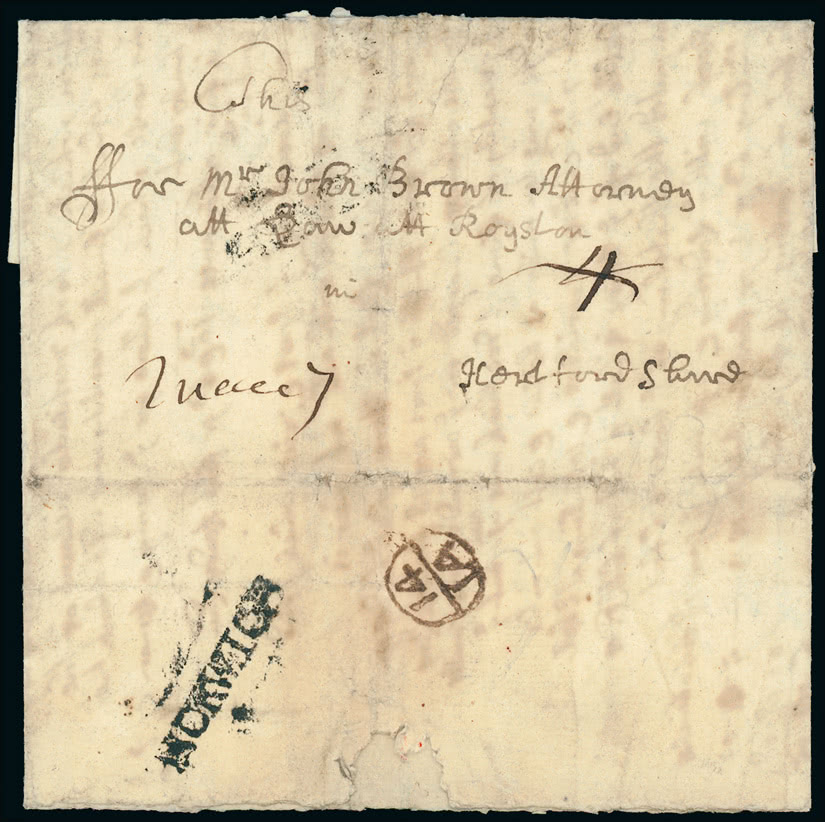 This
ffor Mr John Brown Attorney
att Law att Royston
in
4
Hertford Shire
14
IA
NORWICH